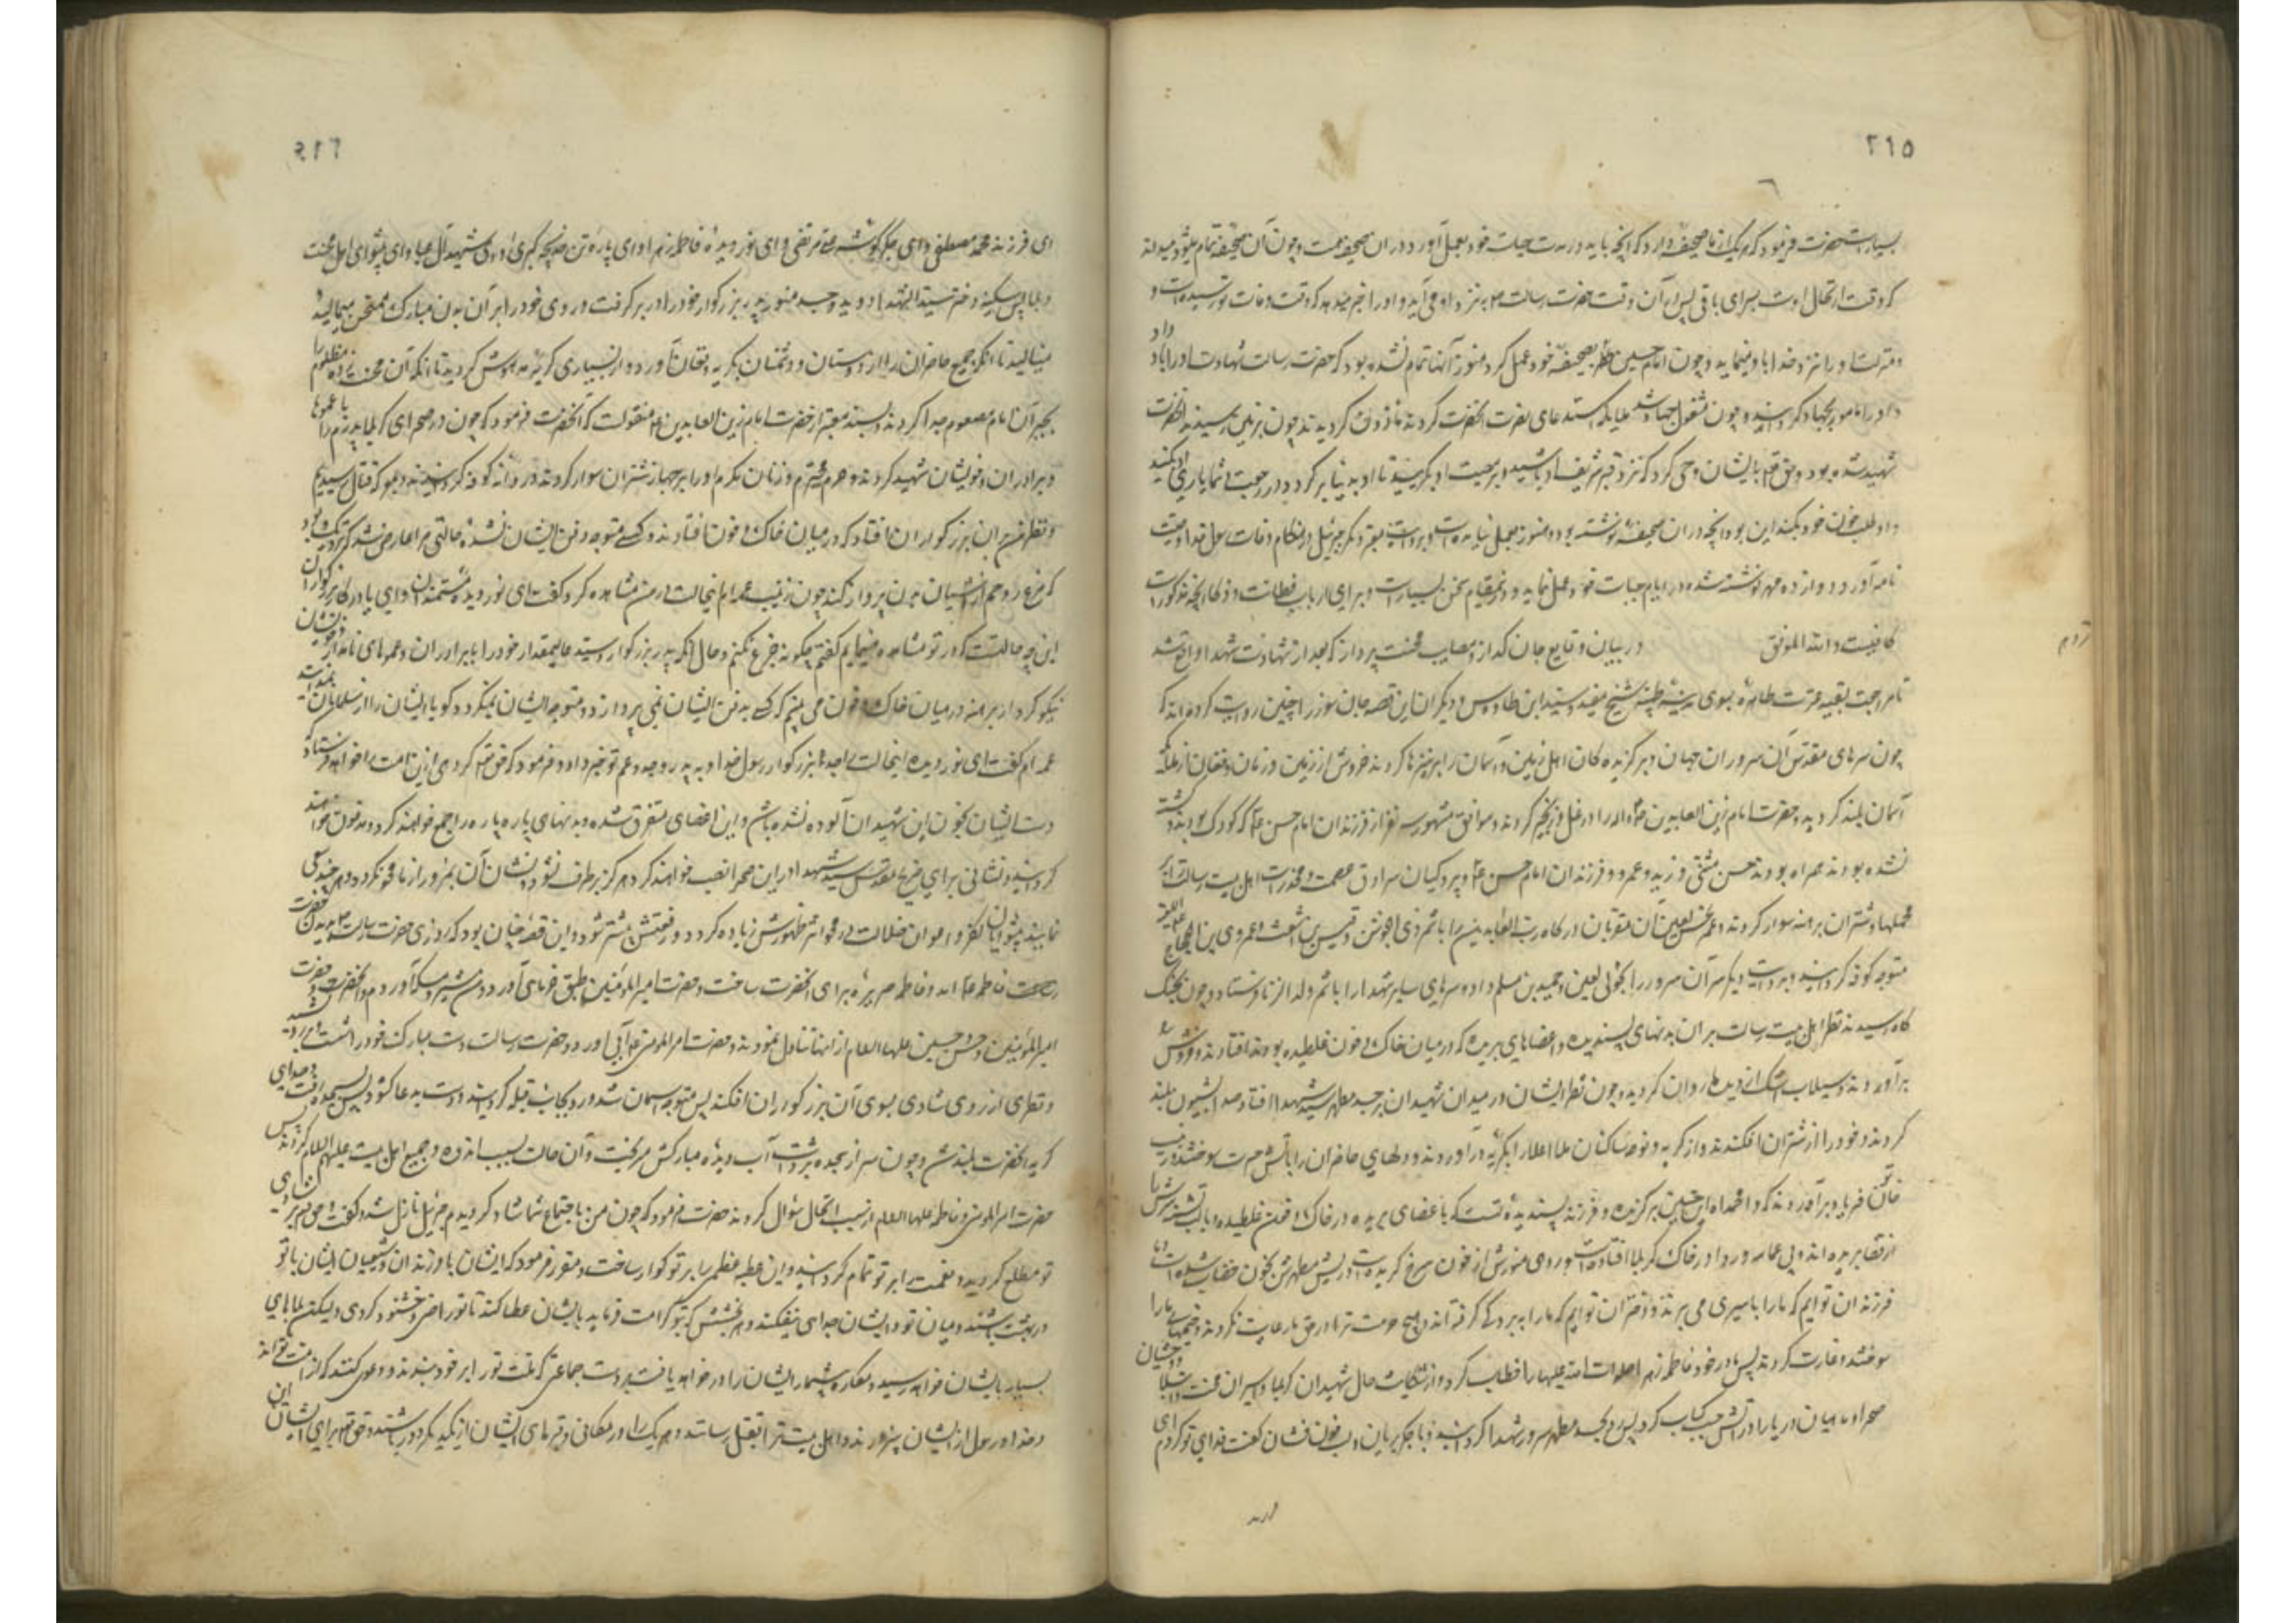 ٢١٥
بسیار است حضرت فرمود که هر یک از ما صحیفه دارد که آنچه باید در مدت حیات خود بعمل آورد در آن صحیفه هست و چون آن صحیفه تمام میشود میداند
که وقت ارتحال اوست بسرای باقی پس در آن وقت حضرت رسالت ص به نزد او می آید و او را خبر میدهد که وقت وفات تو رسیده است و
منزلت او را نزد خدا باو مینماید و چون امام حسین نظر بصحیفه خود عمل کرد هنوز آنها تمام نشده بود که حضرت رسالت شهادت او را باو داد
و او را مامور بجهاد گردانید و چون مشغول جهاد شد ملایکه استدعای نصرت آنحضرت کردند ماذون گردیدند چون بزمین رسیدند آنحضرت
شهید شده بود و حق تع بایشان وحی کرد که نزد قبر شریف او باشید و بر مصیبت او بگریید تا او بدنیا برگردد و در رجعت شما یاری او بکنید
و او طلب خون خود بکند این بود آنچه در آن صحیفه نوشته بود و هنوز بعمل نیامده است و بروایت معتبر دیگر جبرئیل در هنگام وفات رسول خدا وصیت
نامه آورد دوازده مهر نوشته شده در ایام حیات خود عمل نماید و در مقام سخن بسیار است و برای ارباب فطانت و ذکا آنچه مذکور است
کافیست والله الموفق در بیان وقایع جان گداز و مصایب محنت پرداز که بعد از شهادت شهدا واقع شد
تا مراجعت بقیه عترت طاهره بسوی مدینه طیبه شیخ مفید و سید ابن طاوس و دیگران این قصه جان سوز را چنین روایت کرده اند که
چون سرهای مقدس آن سروران جهان و برگزیده کان اهل زمین و آسمان را بر نیزها کردند خروش از زمین و زمان و فغان از ملائکه
آسمان بلند گردید و حضرت امام زین العابدین ع را در غل و زنجیر کردند و موافق مشهور سه نفر از فرزندان امام حسن ع که کودک بودند و کشته
نشده بودند همراه بودند حسن مثنی و زید و عمرو و فرزندان امام حسن ع و پردگیان سرادق عصمت و مخدرات اهل بیت رسالت را بر
محملها و شتران برهنه سوار کردند و عمر نحس لعین آن مقربان درگاه رب العالمین را با شمر ذی الجوشن و قیس بن اشعث و عمرو بن الحجاج علیهم اللعنة
متوجه کوفه گردانید و بروایت دیگر سر آن سرور را بخولی لعین و حمید بن مسلم داد و سرهای سایر شهدا را با شمر ولد الزنا فرستاد و چون بجنگ
گاه رسیدند نظر اهل بیت رسالت بر آن بدنهای پسندیده و اعضاهای بریده که در میان خاک و خون غلطیده بودند افتاد ند و خروش
برآوردند و سیلاب اشک از دیدها روان کردند و چون نظر ایشان در میدان شهیدان بر جسد مطهر سید الشهدا افتاد صدا بشیون بلند
کردند و خود را از شتران افکندند و از گریه و نوحه ساکنان ملا اعلا را بگریه درآوردند و دلهای حاضران را بآتش حسرت سوختند زینب
خاتون فریاد برآورد که وا محمداه این حسین برگزیده و فرزند پسندیده تست که با اعضای بریده در خاک و خون غلطیده و با لب تشنه سرش را
از قفا بریده اند و بی عمامه و ردا در خاک کربلا افتاده است و روی منورش از خون سرخ گردیده است و ریش مطهرش بخون خضاب شده است و ما
فرزندان توایم که ما را باسیری می برند و دختران توایم که ما را به بردگی گرفته اند و هیچ حرمت ترا در حق ما رعایت نکردند و خیمهای ما را
سوختند و غارت کردند پس مادر خود فاطمه زهرا صلوات الله علیها را خطاب کرد و از شکایت حال شهیدان کربلا و اسیران محنت و ابتلا وحشیان
صحرا و ماهیان دریا را در آتش حسرت کباب کرد پس رو بجسد مطهر سرور شهدا گردانید و با جگر بریان و لب خون فشان گفت فدای تو گردم ای
ای فرزند محمد مصطفی و ای جگر گوشه علی مرتضی و ای نور دیده فاطمه زهرا و ای پاره تن خدیجه کبری و ای شهید آل عبا و ای پیشوای اهل محنت
و بلا پس سکینه دختر سید الشهدا دوید و جسد منور پدر بزرگوار خود را در بر گرفت و روی خود را بر آن بدن مبارک ممتحن میمالید
مینالید تا آنکه جمیع حاضران را از دوستان و دشمنان بگریه و فغان آورد و از بسیاری گریه مدهوش گردید تا آنکه آن محنت زده مظلوم را
بجبر از آن امام معصوم جدا کردند و بسند معتبر از حضرت امام زین العابدین ع منقولست که آنحضرت فرمود که چون در صحرای کربلا پدرم را با عموها
و برادران و خویشان شهید کردند و حرم محترم و زنان مکرم او را بر جهاز شتران سوار کردند و روانه کوفه گردانیدند و بمعرکه قتال رسیدیم
و نظر من بر آن بزرگواران افتاد که در میان خاک و خون افتادند و کسی متوجه دفن ایشان نشده حالتی مرا عارض شد که نزدیک بود
که مرغ روحم از آشیان بدن پرواز کند چون زینب عمه ام این حالت در من مشاهده کرد گفت ای نور دیده مستمندان و ای یادگار بزرگواران
این چه حالتست که در تو مشاهده مینمایم گفتم چگونه جزع نکنم و حال آنکه پدر بزرگوار و سید عالیمقدار خود را با برادران و عموهای نامدار و خویشان
نیکو کردار برهنه در میان خاک و خون می بینم که کسی به دفن ایشان نمی پردازد و متوجه ایشان نمیگردد گویا ایشان را از مسلمانان نمیدانند
عمه ام گفت ای نور دیده این حالت را جد بزرگوار رسول خدا به پدر و جد و عم تو خبر داده و فرمود که حق تع گروهی از این امت را خواهد فرستاد که
دست ایشان بخون این شهیدان آلوده نشده باشد و این اعضای متفرق شده و بدنهای پاره پاره را جمع خواهند کرد و مدفون خواهند
گردانید و نشانی برای ضریح مقدس سید شهدا در این صحرا نصب خواهند کرد که هرگز برطرف نشود و نشان آن بمرور ازمنه محو نگردد و هر چند سعی
نمایند پیشوایان کفر و اعوان ضلالت در محو اثر ظهورش زیاده گردد و رفعتش بیشتر شود و این قصه چنان بود که روزی حضرت رسالت ص بدیدن حضرت
فاطمه ع آمد و فاطمه حریره برای آنحضرت ساخت و حضرت امیر المؤمنین طبق خرمای آورد و من شیر و مسکه آوردم و آنحضرت و حضرت
امیر المؤمنین و حسن و حسین علیهما السلام از آنها تناول نمودند و حضرت امیر المؤمنین آبی آورد و حضرت رسالت دست مبارک خود را شست
و نظری از روی شادی بسوی آن بزرگواران افکند پس متوجه آسمان شد و رو بجانب قبله گردانید و دست به دعا گشود پس بسجده رفت و صدای
گریه آنحضرت بلند شد و چون سر از سجده برداشت آب دیده مبارکش میریخت و از آن حالت اهل بیت علیهم السلام گریه کردند پس
حضرت امیر المؤمنین و فاطمه علیهما السلام از سبب آن حال سؤال کردند حضرت فرمود که چون من باجتماع شما شاد گردیدم جبرئیل نازل شد و گفت حق تع بر شادی
تو مطلع گردید و نعمت را بر تو تمام گردانید و این عطیه عظمی را بر تو گوارا ساخت و مقرر فرمود که ایشان با فرزندان و شیعیان ایشان با تو
در بهشت باشند و میان تو و ایشان جدایی نیفکند و هر بخشش که بتو کرامت فرماید بایشان عطا کند تا تو راضی و خشنود گردی ولیکن بلاهای
بسیار بایشان خواهد رسید و مکاره بیشمار ایشان را در خواهد یافت بر دست جماعتی که ملت تو را بر خود بندند و دعوی کنند که از امت تو اند
و خدا و رسول از ایشان بیزارند و اهل بیت ترا بقتل رسانند و هر یک را در مکانی و قبرهای ایشان از یکدیگر دور باشند و حق تع برای ایشان این